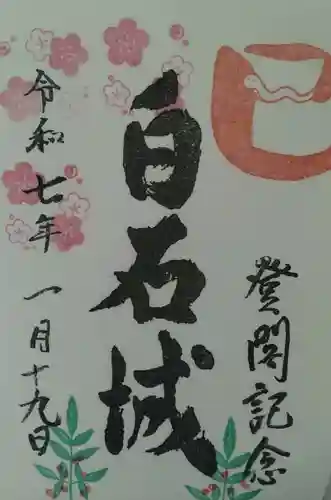 登閣記念
白石城
令和七年一月十九日